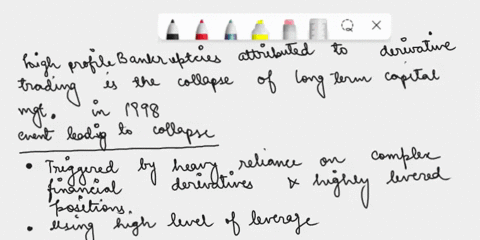 high profile Bankruptcies attributed to derivative
trading is the collapse of long term capital
mgt. in 1998
event leading to collapse
• Triggered by heavy reliance on complex
financial derivatives & highly levered
positions.
• Using high level of leverage